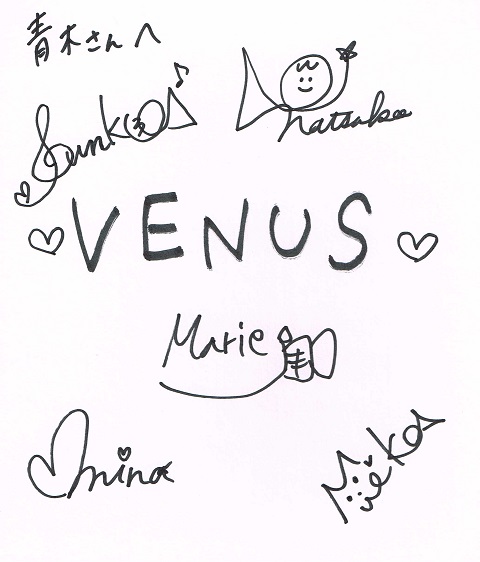 青木さんへ
Junko
natsuko
VENUS
Marie
mina
Mieko